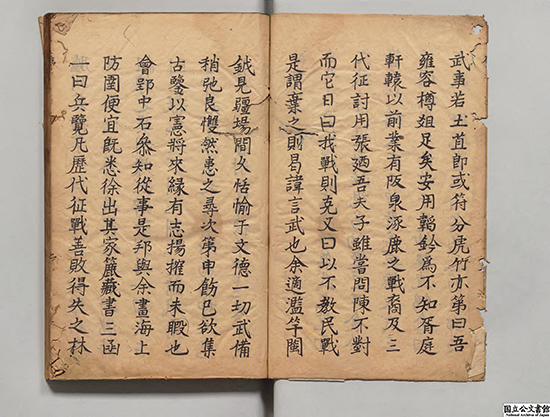 武事若土苴即或符分虎竹亦第曰吾
雍容樽俎足矣安用韜鈐為不知胥庭
軒轅以前業有阪泉涿鹿之戰裔及三
代征討用張廼吾夫子雖當問陳不對
而它日曰我戰則克又曰以不教民戰
是謂棄之則曷諱言武也余適濫竽閩
鉞見疆場間久恬愉于文德一切武備
稍弛良懼然患之尋次第申飭已欲集
古鑒以憲將來緣有志揚搉而未暇也
會郢中石參知從事是邦與余畫海上
防圉便宜既悉徐出其家簏藏書三函
一曰兵覽凡歷代征戰善敗得失之林
国立公文書館
National Archives of Japan